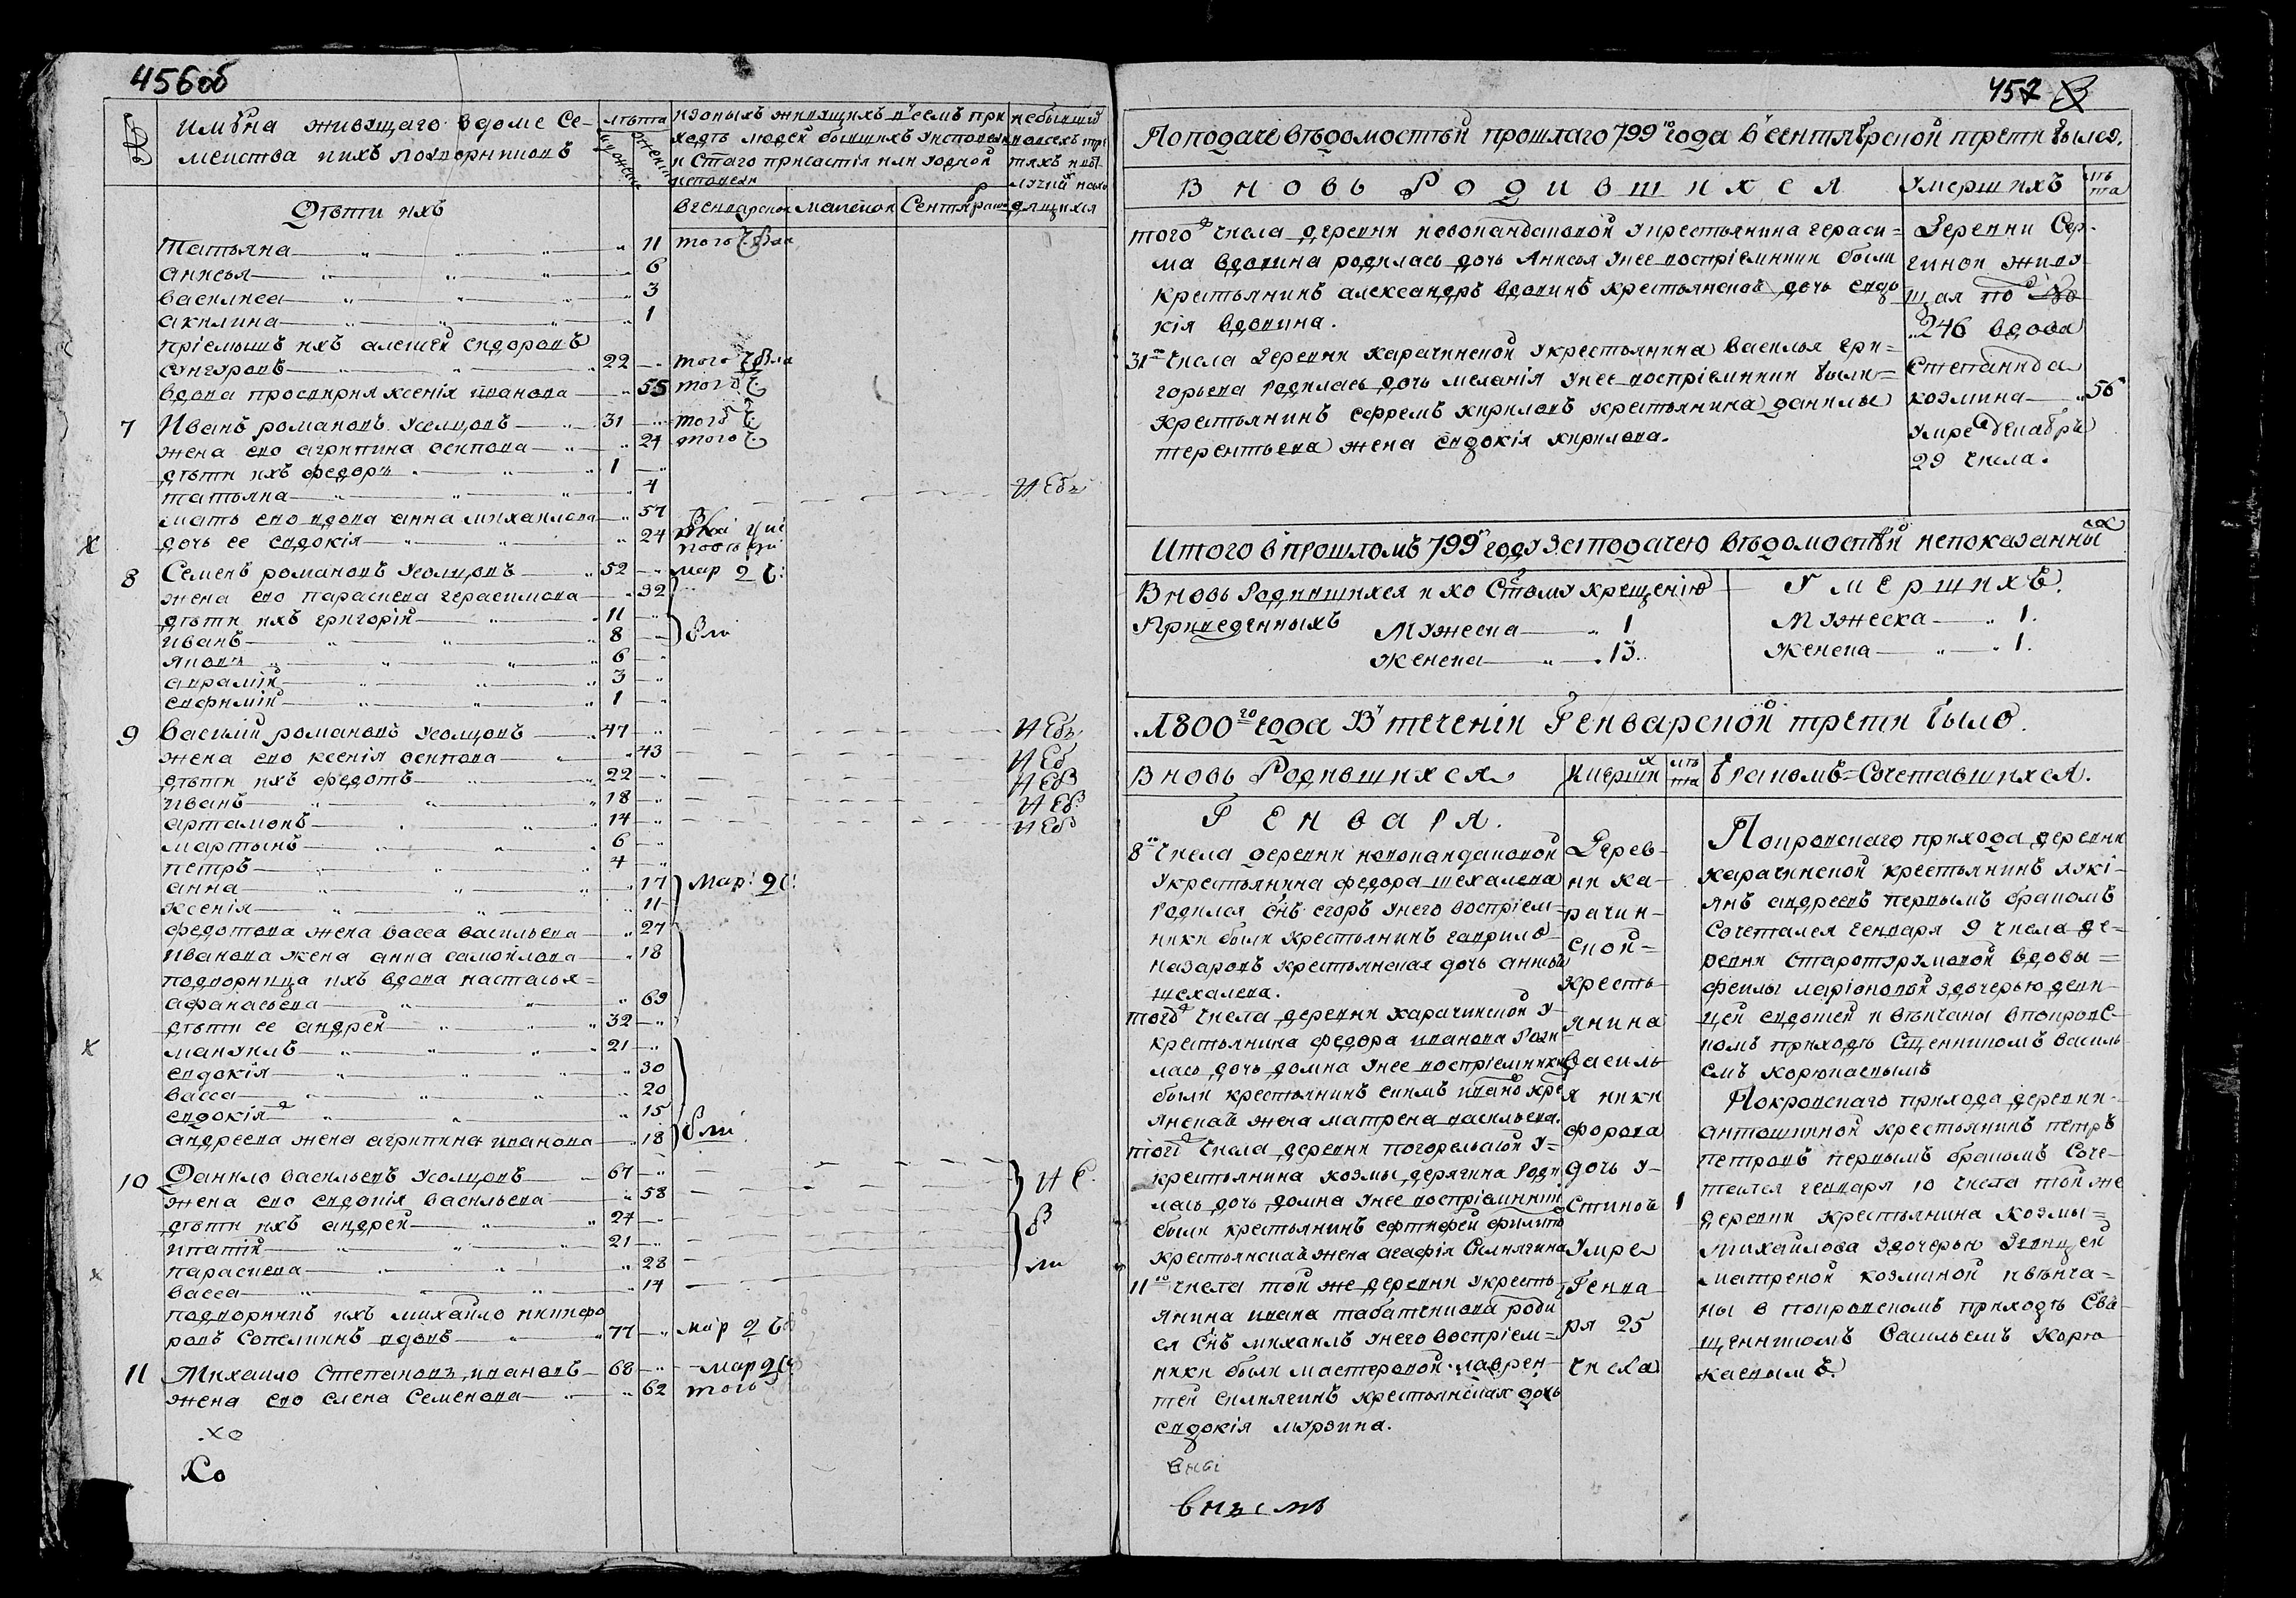 456об
№
имѣна живущаго вдоме Се-
меиства ихъ подворниковъ
лѣта
мужеска
женска
изоныхъ живущихъ всемъ при
ходѣ людей бывшихъ уисповеди
и Стаго причастія или уодной
исповеди
вгенварской
маиской
Сентябрской
небывшихъ
вовсехъ тре
тяхъ
дящихся
Дѣти ихъ
татьяна 11 того ч:
анисья 6
василиса 3
акилина 1
пріемышъ ихъ алешей сидоровъ
22 того ч
вдова просвирня ксенія иванова 55 того ч:
7 Иванъ романовъ Усолцовъ 31 того ч:
жена ево агрипина осипова 24 того ч:
дѣти ихъ федоръ 1
татьяна 4
мать ево вдова анна михаилова 57 н Ебъ
дочь ее евдокія 24
8 Семенъ романовъ Усолцовъ 52 мар 2 ч:
жена ево параскева герасимова 32
дѣти ихъ григорій 11
иванъ 8
яковъ 6
аврамій 3
евфимій 1
9 василій романовъ Усолцовъ 47 н Ебъ
жена ево ксенія осипова 43 н Еб
дѣти ихъ федотъ 22 н Еб
иванъ 18 н Еб
артамонъ 14 н Еб
мартынъ 6
петръ 4
анна 17 мар: 2 ч:
ксенія 11
федотова жена васса васильева 27
иванова жена анна самойлова 18
подворница ихъ вдова настасья=
афанасьева 69
дѣти ее андрей 32
мануилъ 21
евдокія 30
васса 20
евдокія 15
андреева жена агрипина иванова 18
10 Данило васильевъ Усолцовъ 67
жена ево евдокія васильева 58 н Е
дѣти ихъ андрей 24
ипатій 21
параскева 28
васса 14
подворникъ ихъ михайло никифо
ровъ Сопелкинъ вдовъ 77 мар 2 ч
11 Михаило Степановъ ивановъ 68 мар 2 ч
жена ево елена Семенова 62 того
хо
Хо
457
Поподаче вѣдомостѣй прошлаго 799го года в сентябрской трети было.
Вновь Родившихся
умершихъ
лѣта
того числа деревни новопандаиовой укрестьянина гераси=
ма вдовина родилась дочь Анисья унее воспріемники были
крестьянинъ александръ вдовинъ крестьянская дочь евдо
кія вдовина.
31го числа деревни карачинской укрестьянина василья гри=
горьева родилась дочь меланія унее воспріемники были=
крестьянинъ ефремъ кириловъ крестьянина данилы
терентьева жена евдокія кирилова.
деревни Сер-
гиной живу
щая по
246 вдова
Степанида
козмина 56
умре декабря
29 числа.
Итого в прошломъ 799 году заподачею вѣдомостѣй непоказанныхъ
Вновь Родившихся и ко Стому крещенію
Приведенныхъ
Мужеска 1
Женска 13.
Умершихъ.
Мужеска 1.
Женска 1.
1800го года Въ теченіи Генварской трети было.
Вновь Родившихся
Умершихъ
лѣта
бракомъ=Сочетавшихся.
Генваря.
8го числа деревни новопандаиовой
укрестьянина федора шехалева
Родился снъ егоръ унего воспріем-
ники были крестьянинъ гаврило
назаровъ крестьянская дочь
шехалева.
того числа деревни карачинской у-
крестьянина федора иванова роди
лась дочь домна унее воспріемники
были крестьянинъ екимъ ивановъ кре
янская жена матрена васильева.
того числа деревни погорельской у=
крестьянина козмы дерягина роди
лась дочь домна унее воспріемники
были крестьянинъ ефтифей филипо
крестьянская жена агафія Симягина
11го числа той же деревни укресть-
янина ивана табатчикова роди
ся снъ михаилъ унего воспріем=
ники были мастеровой лаврен-
тей симягинъ крестьянская дочь
евдокія мурзина.
Дерев-
ни ка-
рачин-
ской=
кресть-
янина
василь-
я ники
форова
дочь у-
стинья 1
умре
Генва
ря 25
числа
Покровскаго прихода деревни
карачинской крестьянинъ лукі-
янъ андреевъ первымъ бракомъ
Сочетался генваря 9 числа де-
ревни старотурумовой вдовы=
феклы ларіоновой здочерью деви-
цей евдокіей и вѣнчаны впокровс-
комъ приходѣ Сщенникомъ василь
емъ корюкаевымъ
Покровскаго прихода деревни-
антошкиной крестьянинъ петръ
петровъ первымъ бракомъ соче-
тался генваря 10 числа той же
деревни крестьянина козмы=
михаилова здочерью девицей
матреной козминой и вѣнча=
ны в покровскомъ приходѣ Свя-
щенникомъ Васильемъ корю
каевымъ.